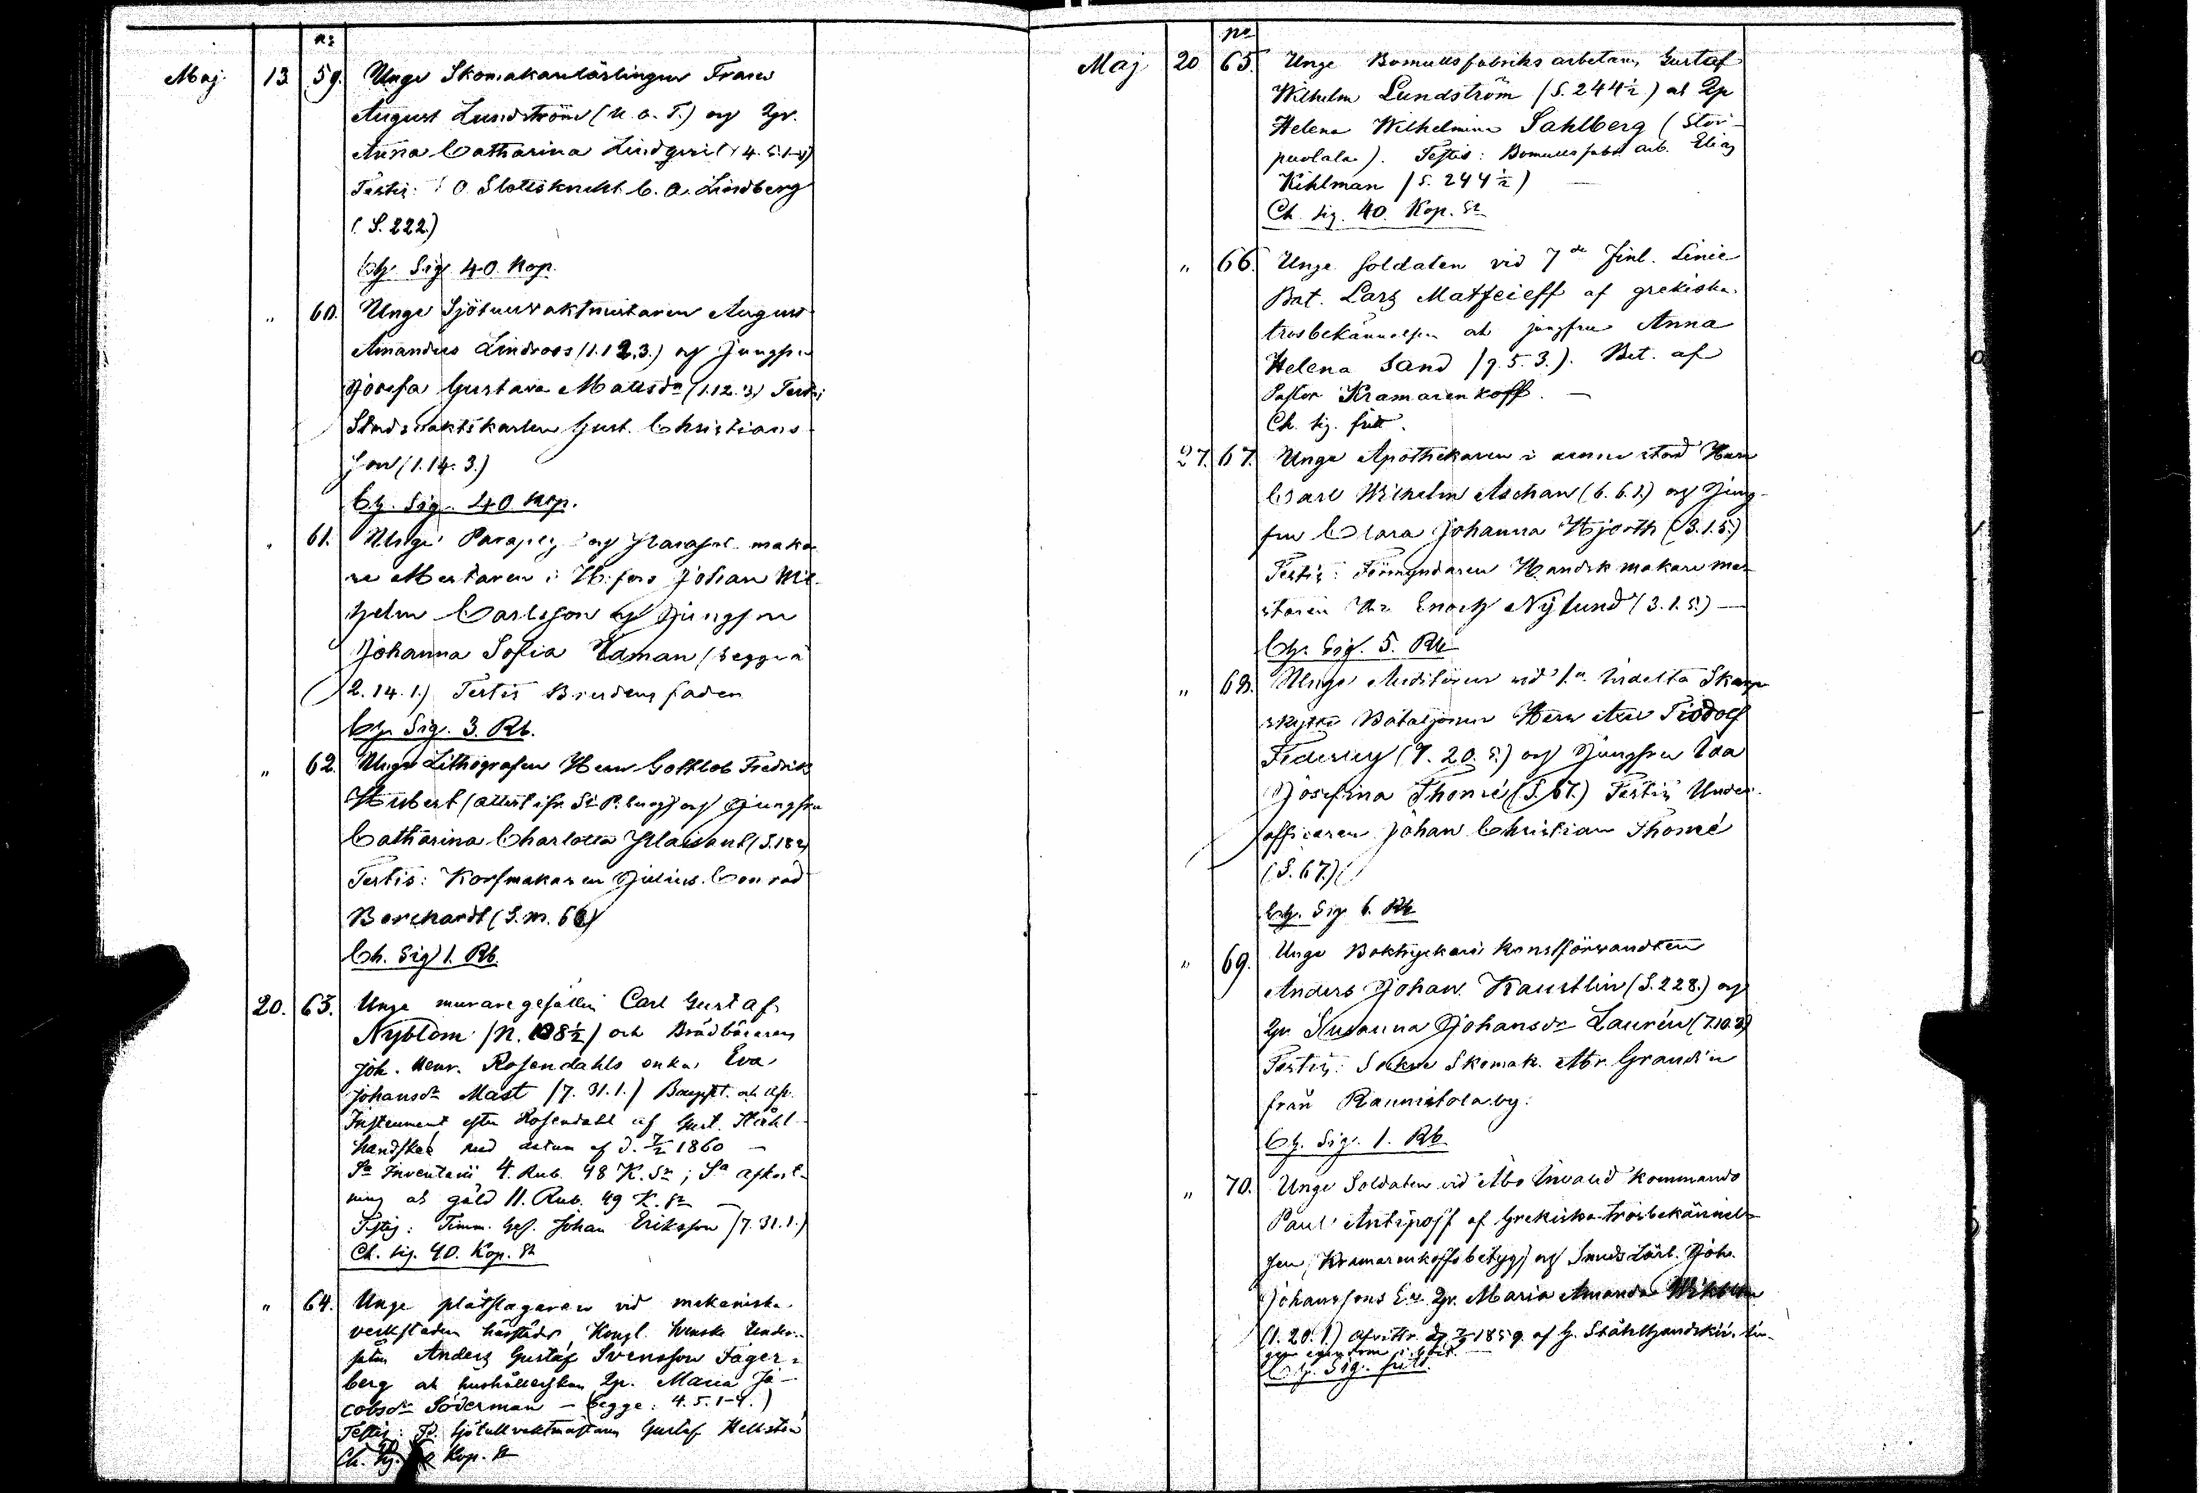 no
Maj. 13 59. Unge Skomakarelärlingen Frans
August Lundström (U. a. T.) och Pgn.
Anna Catharina Lindqvist (4. 5. 1-4)
Testis: Slottsknekt C. A. Lindberg
(S. 222.)
Ch. Sig. 40 Kop.
" 60. Unge Sjötullvaktmästaren August
Amandus Lindroos (1. 12. 3.) och Jungfru
Josefa Gustava Matsdr (1. 12. 3) Testis
Gust. Christians
son (1. 14. 3.)
Ch. Sig. 40 Kop.
" 61. Unge Paraply och Parasol maka
re Mestaren i H:fors Johan Wil
helm Carlsson och Jungfru
Johanna Sofia Edman (begge a
2. 14. 1.) Testis Brudens fader
Ch. Sig. 3. Rb.
" 62. Unge Lithografen Herr Gottlob Fredrik
Hubert (attest ifr. St. P.burg) och Jungfru
Catharina Charlotta (S. 182)
Testis: Korfmakaren Julius Conrad
Borchardt (S. m. 66)
Ch. Sig 1. Rb.
20. 63. Unge muraregesällen Carl Gustaf
Nyblom (N. 108½) och Brödbäraren
Joh. Henr. Rosendahls enka Eva
Johansdr Mast (7. 31. 1.) Bouppt. och afh.
Instrument efter Rosendahl af Gust. Stål
handske med datum af d. 7/2 1860 —
Sa Inventarii 4. Rub. 48 K. Sr; Sa afkort-
ning och gäld 11. Rub. 49 K. Sr —
Testis: Timm. Ges. Johan Eriksson (7. 31. 1.)
Ch. sig. 40. Kop. Sr
" 64. Unge plåtslagaren vid mekaniska
verkstaden härstädes, Kongl. Svenske Under-
såten Anders Gustaf Svensson Fager-
berg och hushållerskan Pgn. Maria Ja-
cobsdr Söderman — (begge: 4. 5. 1-4.)
Testis: Sjötullvaktmästaren Gustaf Hellstén
Ch. Sig. Kop. Sr
no
Maj 20 65. Unge Bomullsfabriks arbetaren Gustaf
Wilhelm Lundström (S. 244½) och Pgn
Helena Wilhelmina Sahlberg (Stor-
puolala). Testis: Bomullsfabr. arb. Elias
Kihlman (S. 244½) —
Ch. sig. 40. Kop. Sr
" 66. Unge soldaten vid 7de Finl. Linie
Bat. Lars Matfeieff af grekiska
trosbekännelsen och jungfru Anna
Helena Sand (9. 5. 3.). Bet. af
Pastor Kramarenkoff. —
Ch. sig. fritt.
27. 67. Unge Apothekaren i denna stad Herr
Carl Wilhelm Aschan (6. 6. 1.) och Jung-
fru Clara Johanna Hjorth (3. 1. 5.)
Testis: Förmyndaren Handskmakare me-
staren Hr Enoch Nylund (3. 1. 5.) —
Ch. Sig. 5. Rb
" 68. Unge Auditören vid 1:a Indelta Skarp
skytte Bataljonen Herr Axel Tiodolf
Federley (7. 20. 5.) och Jungfru Ida
Josefina Thomé (S. 67.) Testis Under-
officeren Johan Christian Thomé
(S. 67.)
Ch. Sig 6. Rb
" 69. Unge Boktryckeri konstförvandten
Anders Johan Kaustlin (S. 228.) och
Pgn Susanna Johansdr Laurén (7. 10. 3)
Testis: Sockne Skomak. Abr. Grandin
från Raunistola by.
Ch. Sig. 1. Rb
" 70. Unge Soldaten vid Åbo Invalid Kommando
Paul Antipoff af Grekiska trosbekännel-
sen (Kramarenkoffs betyg) och Smeds Lärl. Joh.
Johanssons Ea Pgn. Maria Amanda
(1. 20. 1.) Afvittr. d. 1859. af G. Stålhandske,

Ch. Sig. fritt.